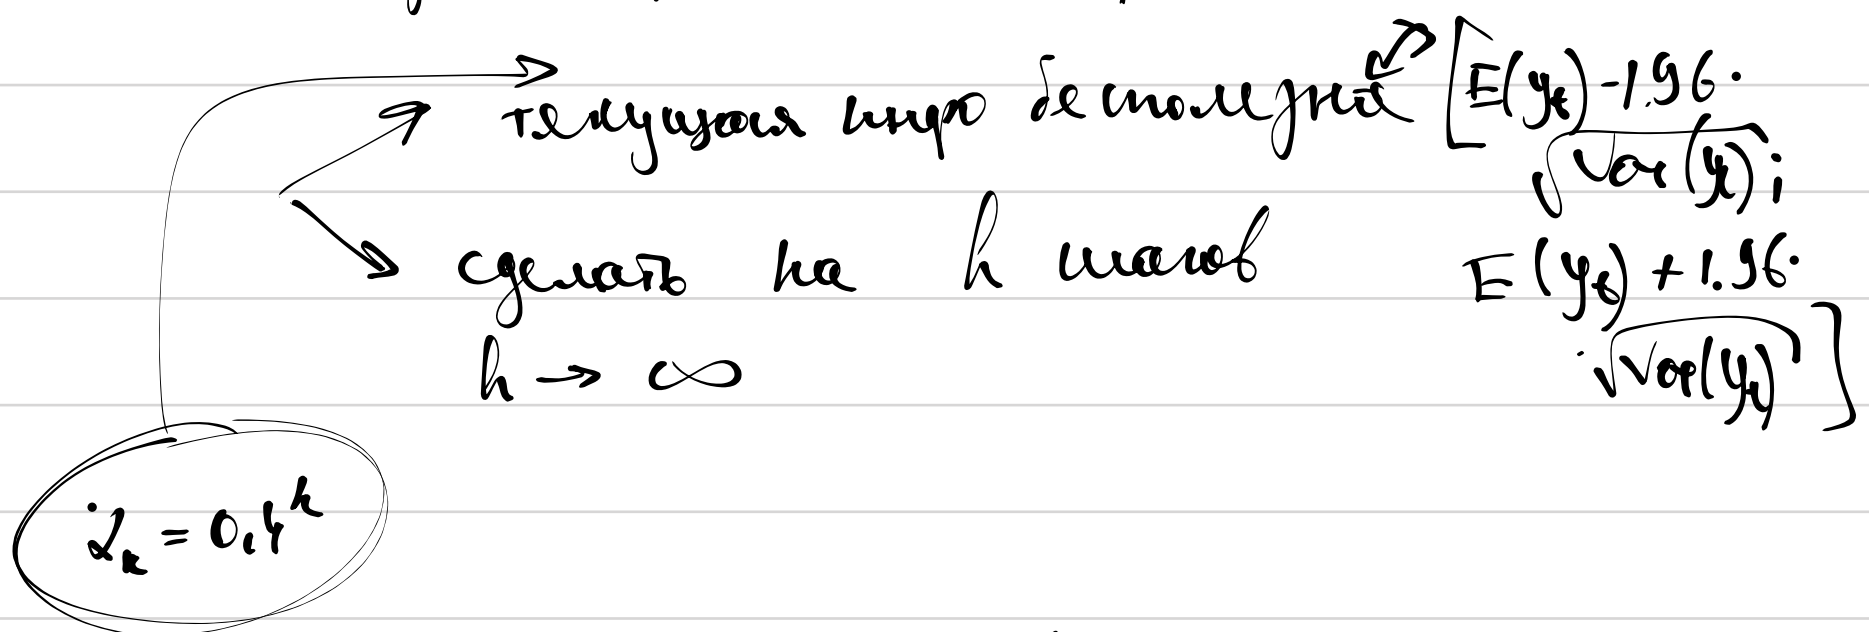 текущая инфо бесполезна [E(y_t) - 1.96 ·
√Var(y_t) ;
сделать на h шагов
E(y_t) + 1.96 ·
h → ∞
· √Var(y_t) ]
= 0.4^h